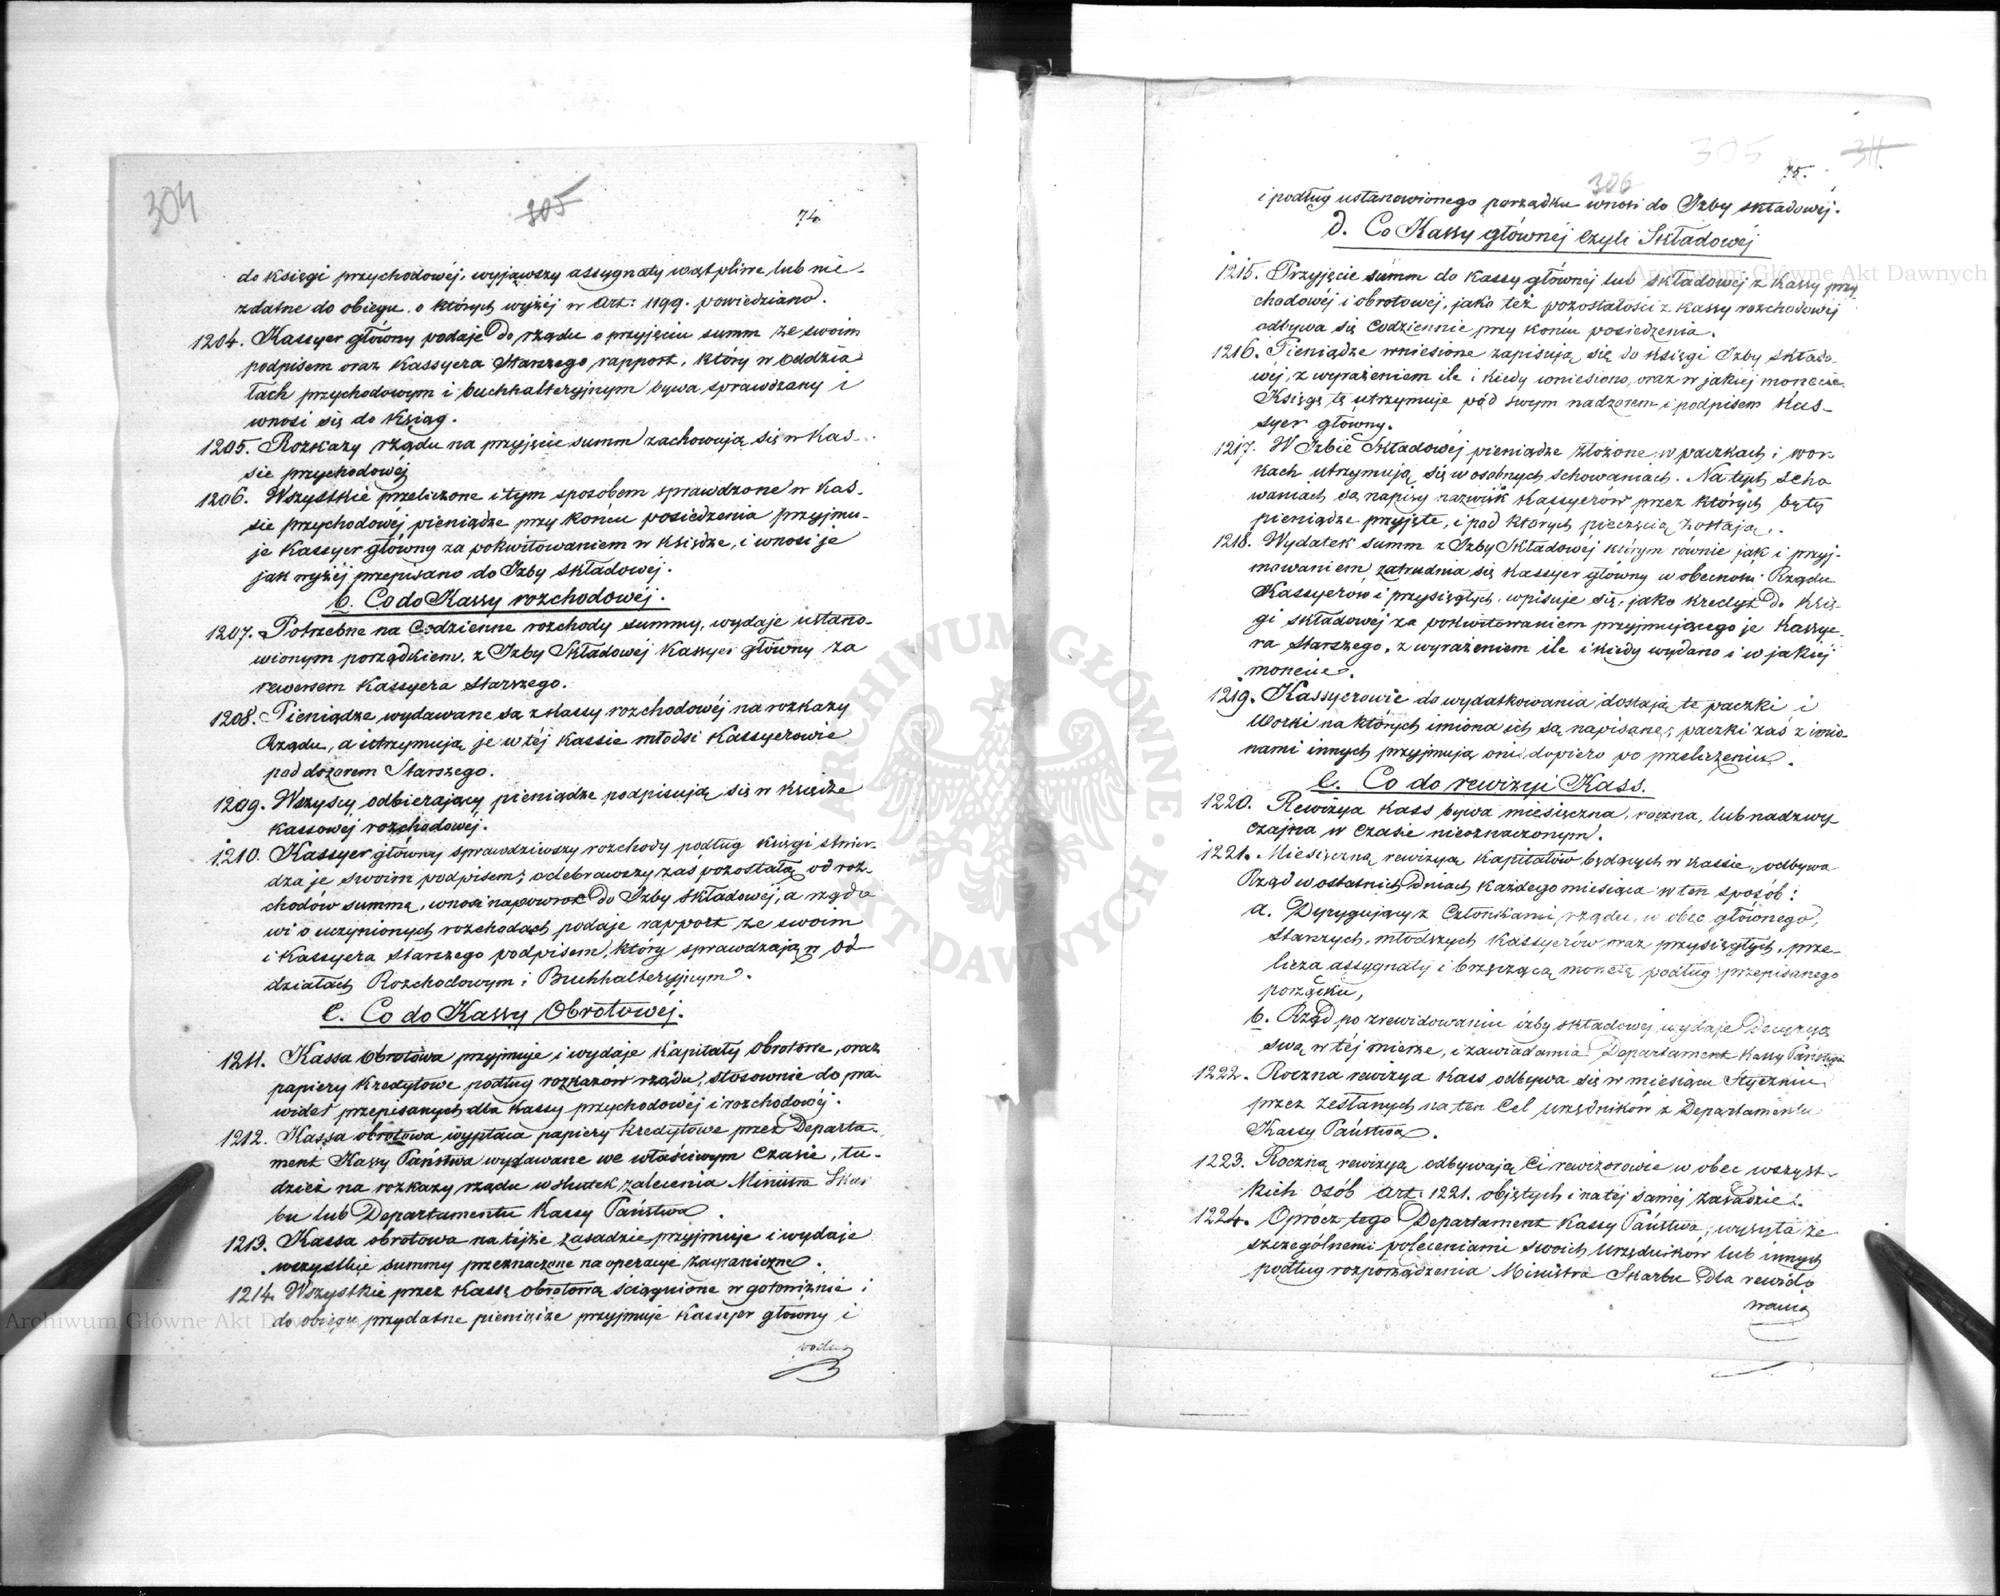 304
305
74.
do księgi przychodowéj, wyjąwszy assygnaty wątpliwe lub nie-
zdatne do obiegu, o których wyżéj w Art: 1199. powiedziano.
1204. Kassyer główny podaje do rządu o przyjęciu summ ze swoim
podpisem oraz Kassyera Starszego rapport, który w oddzia
łach przychodowym i buchhalteryjnym bywa sprawdzany i
wnosi się do Ksiąg.
1205. Rozkazy rządu na przyjęcie summ zachowują się w Kas-
sie przychodowéj
1206. Wszystkie przeliczone i tym sposobem sprawdzone w Kas-
sie przychodowéj pieniądze przy końcu posiedzenia przyjmu-
je Kassyer główny za pokwitowaniem w Księdze, i wnosi je
jak wyżéj przepisano do Izby składowéj.
b. Co do Kassy rozchodowéj.
1207. Potrzebne na codzienne rozchody summy, wydaje ustano-
wionym porządkiem, z Izby Składowéj Kassyer główny za
rewersem Kassyera Starszego.
1208. Pieniądze wydawane są z Kassy rozchodowéj na rozkazy
Rządu, a utrzymują je w téj Kassie młodsi Kassyerowie
pod dozorem Starszego.
1209. Wszyscy odbierający pieniądze podpisują się w Księdze
Kassowéj rozchodowéj.
1210. Kassyer główny sprawdziwszy rozchody podług księgi stwier-
dza je swoim podpisem; odebrawszy zaś pozostałą od roz-
chodów summę, wnosi napowrót do Izby składowéj, a rządo
wi o uczynionych rozchodach podaje rapport ze swoim
i Kassyera Starszego podpisem, który sprawdzają w Od-
działach Rozchodowym i Buchhalteryjnym.
c. Co do Kassy Obrotowéj.
1211. Kassa obrotowa przyjmuje i wydaje Kapitały obrotowe, oraz
papiery Kredytowe podług rozkazów rządu, stosownie do pra-
wideł przepisanych dla Kassy przychodowéj i rozchodowéj.
1212. Kassa obrotowa wypłaca papiery kredytowe przez Departa-
ment Kassy Państwa wydawane we właściwym czasie, tu-
dzież na rozkazy rządu w skutek zalecenia Ministra Skar
bu lub Departamentu Kassy Państwa.
1213. Kassa obrotowa na téjże zasadzie przyjmuje i wydaje
wszystkie summy przeznaczone na operacje zagraniczne.
1214. Wszystkie przez Kassę obrotową ściągnione w gotowiźnie i
do obiegu przydatne pieniądze przyjmuje Kassyer główny i
podług
305
311.
306
75.
i podług ustanowionego porządku wnosi do Izby składowéj.
d. Co Kassy głównéj czyli Składowéj
1215. Przyjęcie summ do Kassy głównéj lub składowéj z Kassy przy
chodowéj i obrotowéj, jako też pozostałości z kassy rozchodowéj
odbywa się codziennie przy końcu posiedzenia.
1216. Pieniądze wniesione zapisują się do księgi Izby składo-
wéj, z wyrażeniem ile i kiedy wniesiono, oraz w jakiej monecie.
Księgę tę utrzymuje pod swym nadzorem i podpisem Kas-
syer główny.
1217. W Izbie Składowéj pieniądze złożone w paczkach i wor-
kach utrzymują się w osobnych schowaniach. Na tych scho
waniach są napisy nazwisk Kassyerów przez których są te
pieniądze przyjęte, i pod których pieczęcią zostają.
1218. Wydatek summ z Izby Składowéj którym równie jak i przyj-
mowaniem zatrudnia się Kassyer główny w obecności Rządu
Kassyerów i przysięgłych, wpisuje się, jako kredyt do Księ-
gi składowéj za pokwitowaniem przyjmującego je Kassye-
ra Starszego, z wyrażeniem ile i kiedy wydano i w jakiej
monecie.
1219. Kassyerowie do wydatkowania dostają te paczki i
worki na których imiona ich są napisane; paczki zaś z imio-
nami innych przyjmują oni dopiero po przeliczeniu.
e. Co do rewizyi Kass.
1220. Rewizya Kass bywa miesięczna, roczna, lub nadzwy
czajna w czasie nieoznaczonym.
1221. Miesięczną rewizyą Kapitałów będących w kassie, odbywa
Rząd w ostatnich dniach każdego miesiąca w ten sposób:
a. Dyrygujący z Członkami rządu, w obec głównego,
Starszych, młodszych Kassyerów, oraz przysięgłych, prze-
licza assygnaty i brzęczącą monetę podług przepisanego
porządku,
b. Rząd po zrewidowaniu izby składowéj wydaje Decyzyą
swą w téj mierze, i zawiadamia Departament Kassy Państwa
1222. Roczna rewizya Kass odbywa się w miesiącu Styczniu
przez zesłanych na ten cel urzędników z Departamentu
Kassy Państwa.
1223. Roczną rewizyą odbywają Ci rewizorowie w obec wszyst-
kich osób Art: 1221. objętych i na téj saméj zasadzie.
1224. Oprócz tego Departament Kassy Państwa, wysyła ze
szczególnemi poleceniami swoich urzędników lub innych
podług rozporządzenia Ministra Skarbu dla rewido
wania
Archiwum Główne Akt Dawnych
ARCHIWUM GŁÓWNE AKT DAWNYCH
Archiwum Główne Akt Dawnych